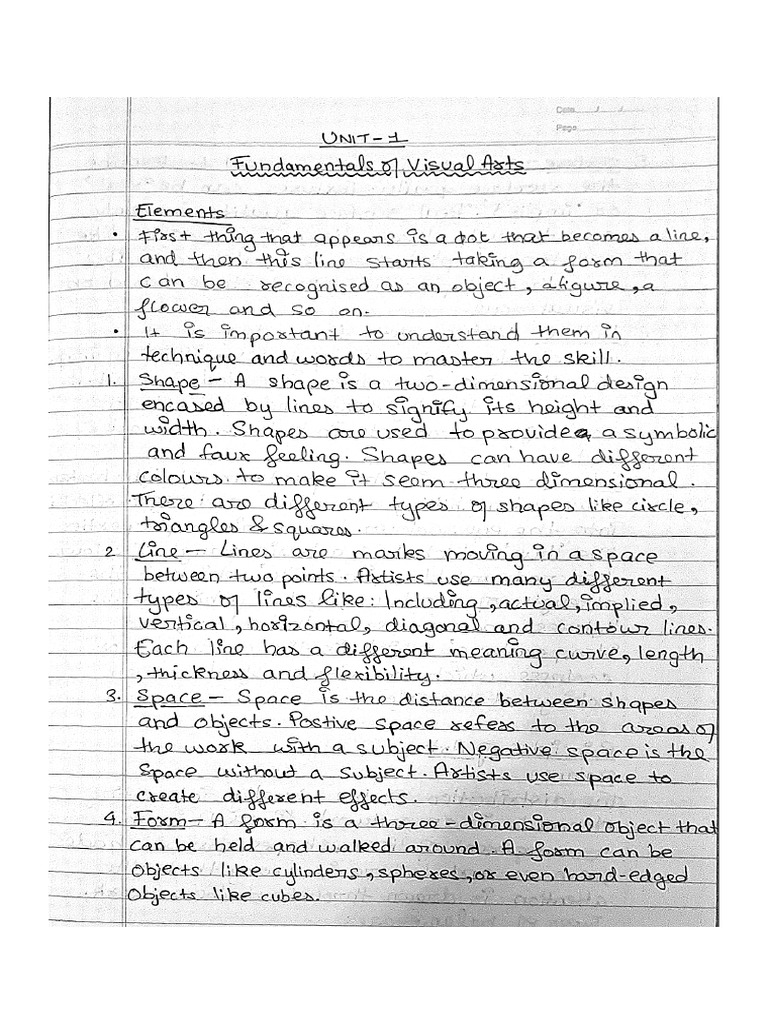 Date / /
Page
UNIT-1
Fundamentals of Visual Arts
Elements
• First thing that appears is a dot that becomes a line,
and then this line starts taking a form that
can be recognised as an object, a figure, a
flower and so on.
• It is important to understand them in
technique and words to master the skill.
1. Shape - A shape is a two-dimensional design
encased by lines to signify its height and
width. Shapes are used to provide a symbolic
and faux feeling. Shapes can have different
colours to make it seem three dimensional.
There are different types of shapes like circle,
triangles & squares.
2. Line - Lines are marks moving in a space
between two points. Artists use many different
types of lines like: Including, actual, implied,
vertical, horizontal, diagonal and contour lines.
Each line has a different meaning curve, length
, thickness and flexibility.
3. Space - Space is the distance between shapes
and objects. Postive space refers to the areas of
the work with a subject. Negative space is the
space without a subject. Artists use space to
create different effects.
4. Form - A form is a three-dimensional object that
can be held and walked around. A form can be
objects like cylinders, spheres, or even hard-edged
objects like cubes.